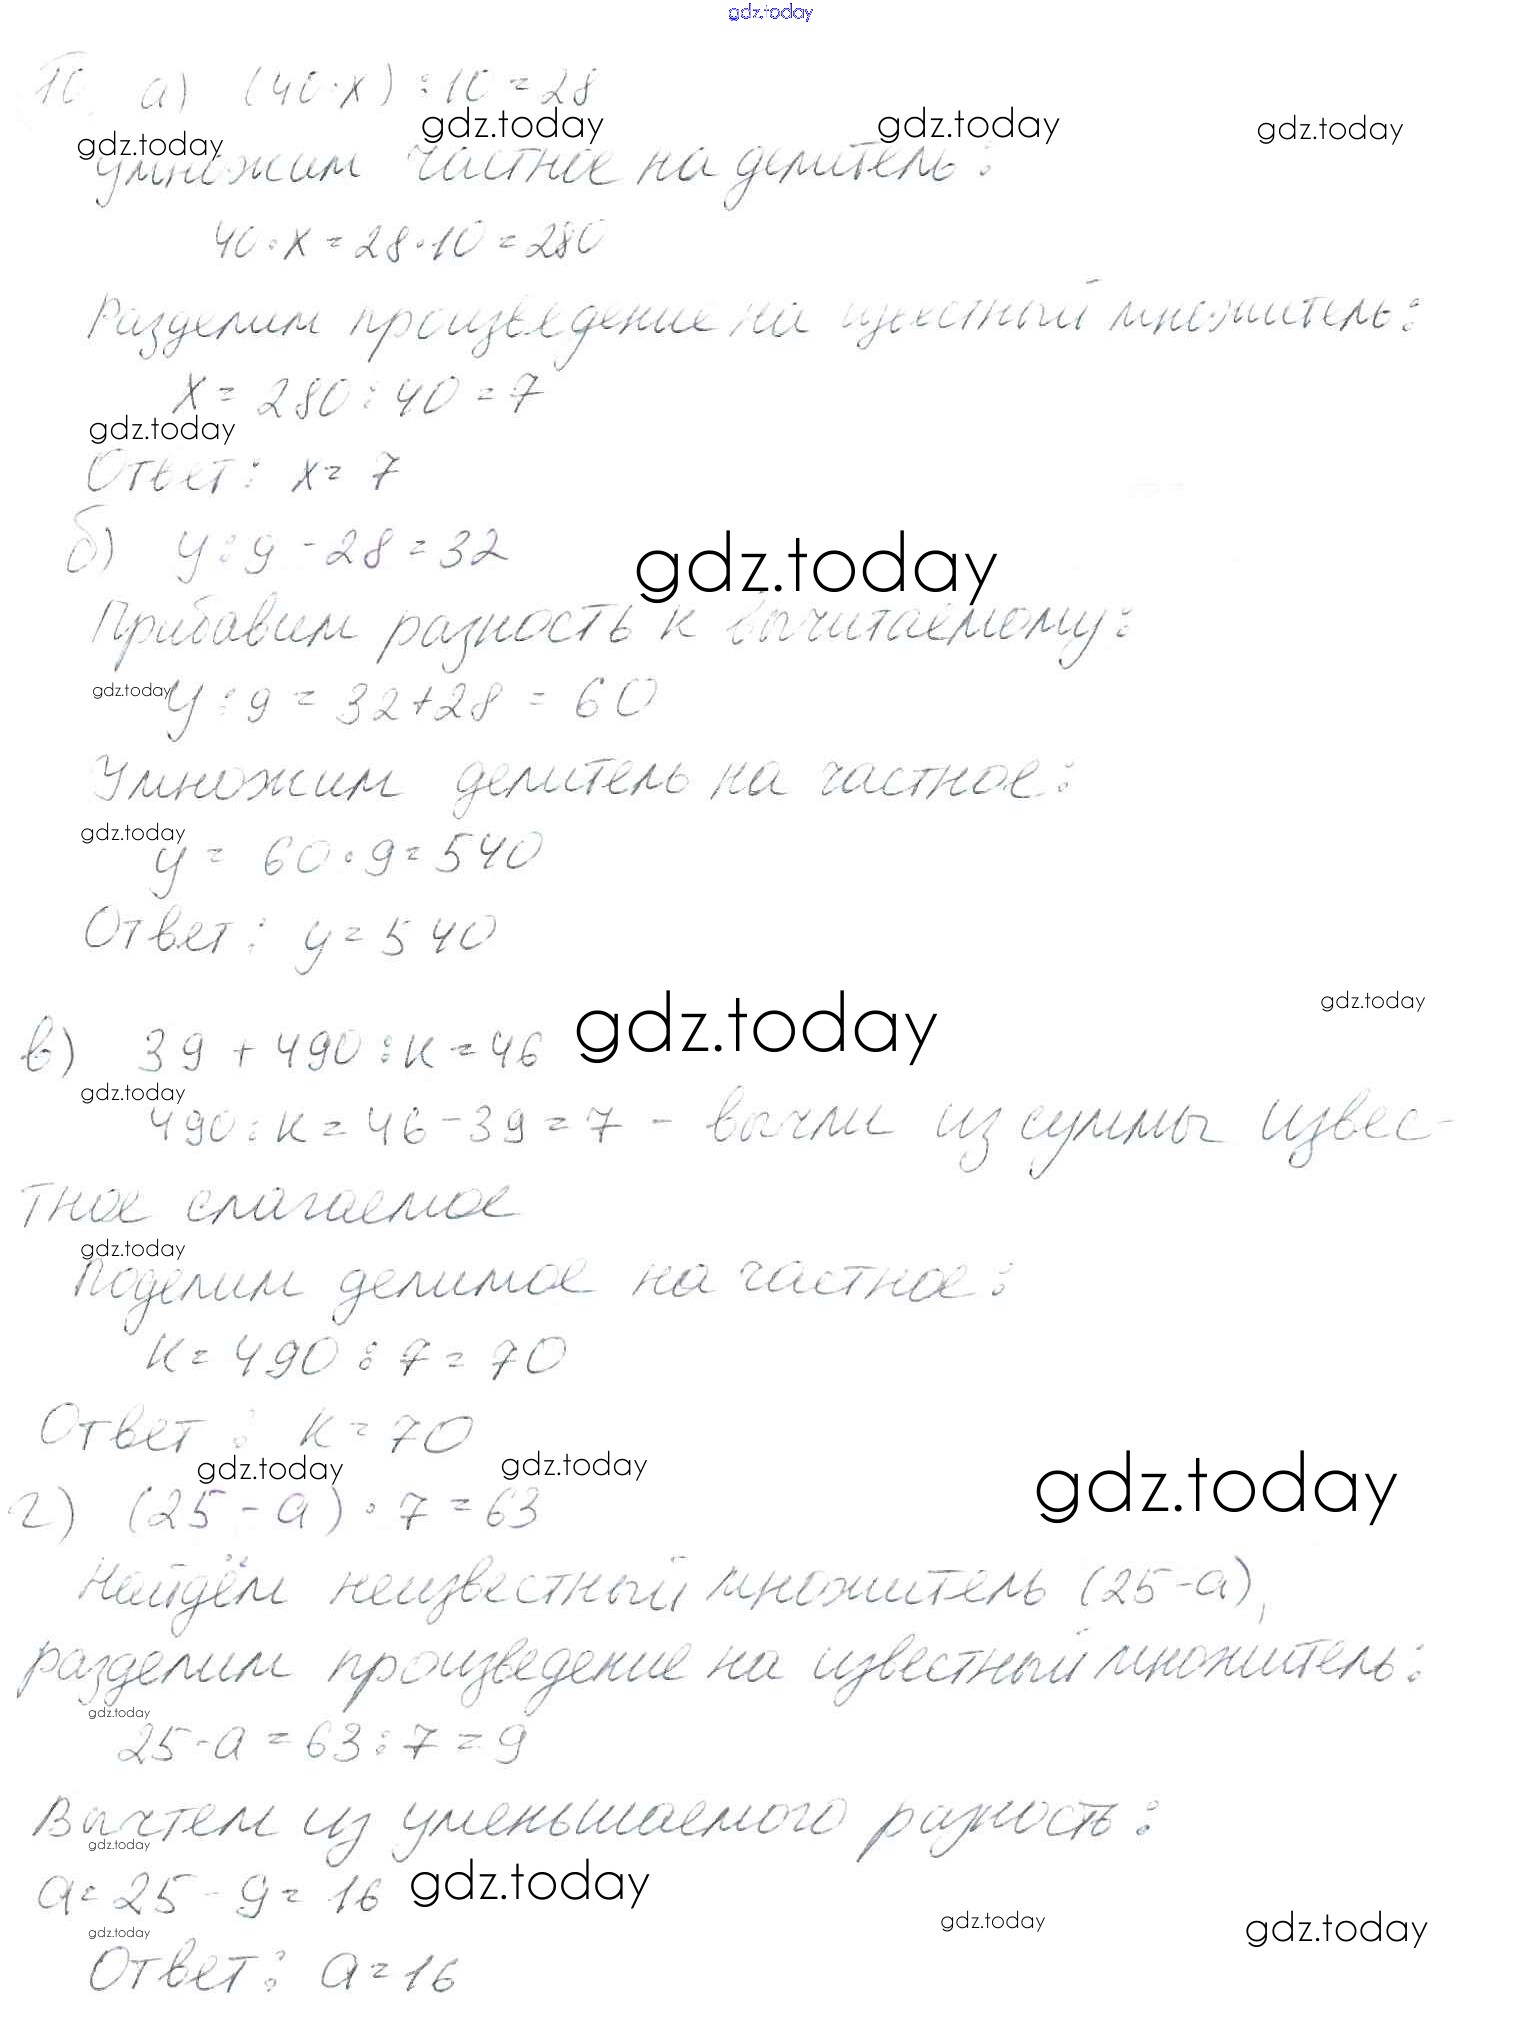 gdz.today
10. а) (40·x):10=28
gdz.today gdz.today gdz.today gdz.today
умножим частное на делитель:
40·x=28·10=280
Разделим произведение на известный множитель:
x=280:40=7
gdz.today
Ответ: x=7
б) y:9-28=32
gdz.today
Прибавим разность к вычитаемому:
gdz.today
y:9=32+28=60
Умножим делитель на частное:
gdz.today
y=60·9=540
Ответ: y=540
gdz.today gdz.today
в) 39+490:к=46
gdz.today
490:к=46-39=7 - вычли из суммы извес-
тное слагаемое
gdz.today
Поделим делимое на частное:
к=490:7=70
Ответ: к=70
gdz.today gdz.today gdz.today
г) (25-а)·7=63
Найдём неизвестный множитель (25-а),
разделим произведение на известный множитель:
gdz.today
25-а=63:7=9
Вычтем из уменьшаемого разность:
gdz.today
а=25-9=16
gdz.today
gdz.today gdz.today
gdz.today
Ответ: а=16